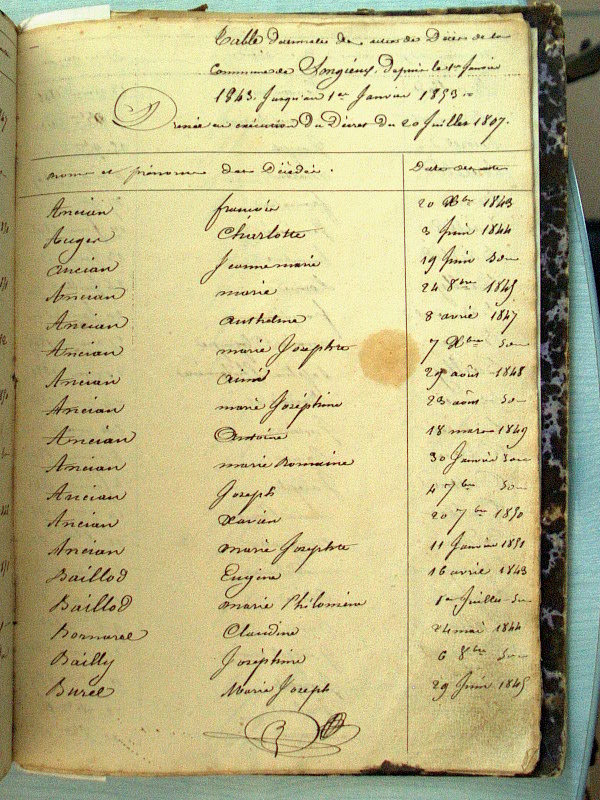 Table décennale des actes de Décès de la
Commune de Songieux, depuis le 1er Janvier
1843, jusqu'au 1er Janvier 1853.
Dressée en exécution du Décret du 20 Juillet 1807.
noms et prénoms des Décédés. Dates des actes
Ancian françois 20 Xbre 1843
Auger Charlotte 3 Juin 1844
Ancian Jeanne marie 19 Juin do
Ancian marie 24 8bre 1845
Ancian anthelme 8 avril 1847
Ancian marie Josephte 7 Xbre do
Ancian aimé 29 août 1848
Ancian marie Joséphine 23 août do
Ancian Antoine 18 mars 1849
Ancian marie Romaine 30 Janvier do
Ancian Joseph 4 7bre do
Ancian Xavier 20 7bre 1850
Ancian marie Josephte 11 Janvier 1851
Baillod Eugène 16 avril 1843
Baillod marie Philomène 1er Juillet do
Bornarel Claudine 24 mai 1844
Bailly Joséphine 6 8bre do
Burel Marie Joseph 29 Juin 1845